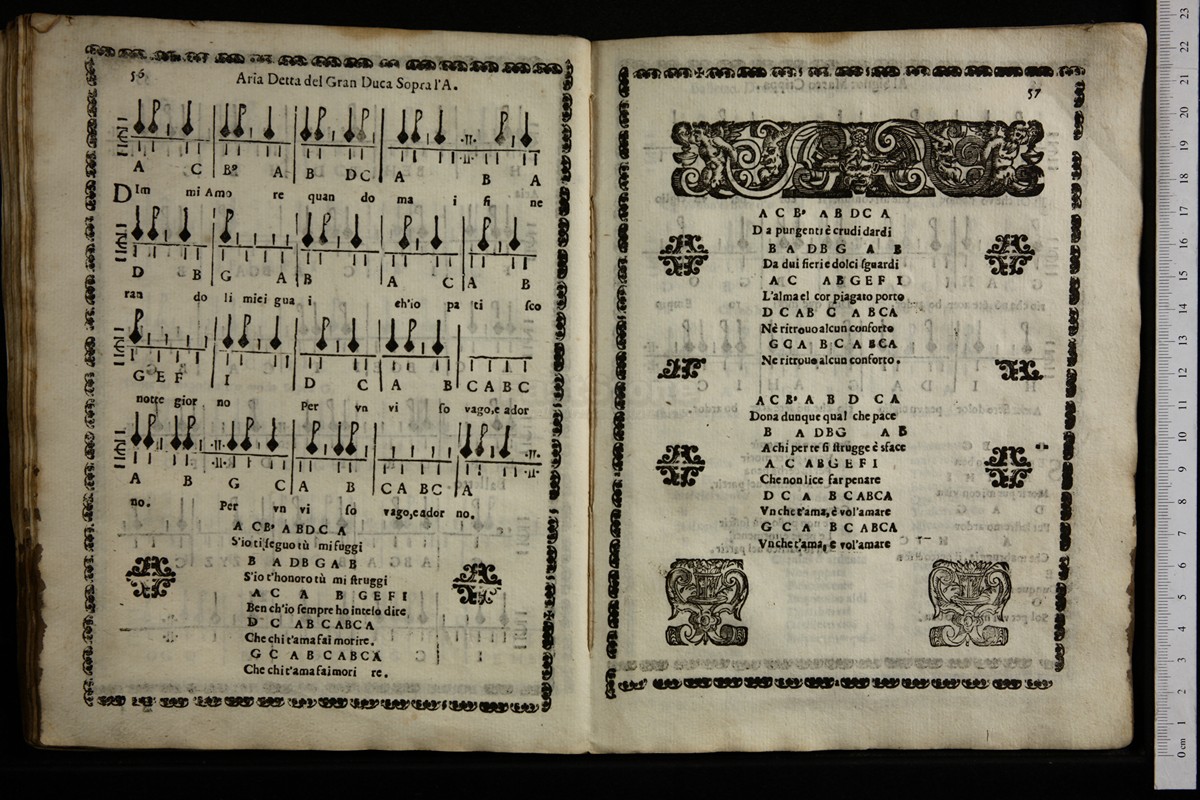 56
Aria Detta del Gran Duca Sopra l'A.
A C Bº A B DC A B A
DIm mi Amo re quan do ma i fi ne
D B G A B A C A B
ran do li miei gua i ch'io pa ti sco
G E F I D C A B C A B C
notte gior no Per vn vi so vago,e ador
A B G C A B C A BC A
no. Per vn vi so vago,e ador no.
A CBº A B D C A
S'io ti seguo tù mi fuggi
B A DB G A B
S'io t'honoro tù mi struggi
A C A B G E F I
Ben ch'io sempre ho inteso dire
D C AB C ABCA
Che chi t'ama fai morire.
G C A B C A B C A
Che chi t'ama fai mori re.
57
A C Bº A B DC A
Da pungenti è crudi dardi
B A DB G A B
Da dui fieri e dolci sguardi
A C A B G E F I
L'alma el cor piagato porto
D C AB C A BCA
Nè ritrouo alcun conforto
G C A B C A B C A
Ne ritrouo alcun conforto.
A C Bº A B D C A
Dona dunque qual che pace
B A DBG A B
A chi per te si strugge è sface
A C A B G E F I
Che non lice far penare
D C A B C ABCA
Vn che t'ama, è vol'amare
G C A B C A B C A
Vn che t'ama, e vol'amare